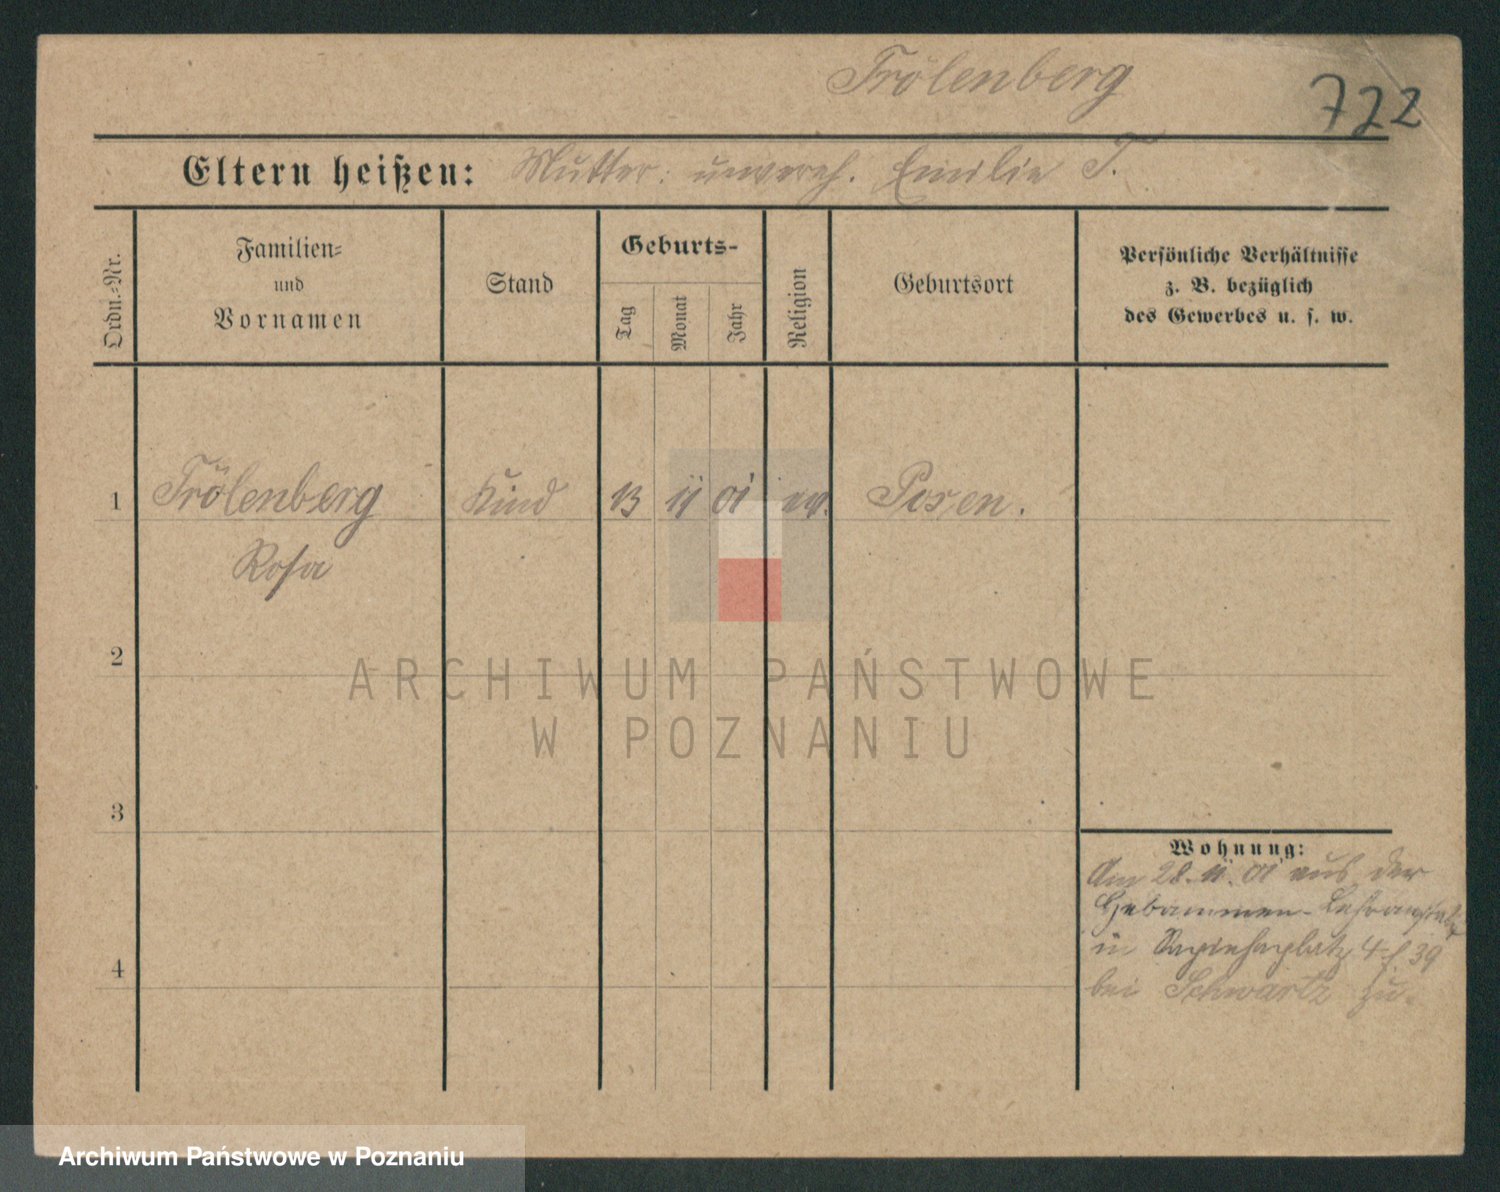 Trölenberg
722
Eltern heißen: Mutter: unvereh. Emilie T.
Ordn.-Nr.
Familien-
und
Vornamen
Stand
Geburts-
Tag
Monat
Jahr
Religion
Geburtsort
Persönliche Verhältnisse
z. B. bezüglich
des Gewerbes u. s. w.
1 Trölenberg Kind 13 11 01 ev. Posen.
Rosa
2
3
4
Wohnung:
Am 28. 11. 01 aus der
Hebammen-Lehranstalt
in Sapiehaplatz 4
bei Schwartz zu.
ARCHIWUM PAŃSTWOWE
W POZNANIU
Archiwum Państwowe w Poznaniu